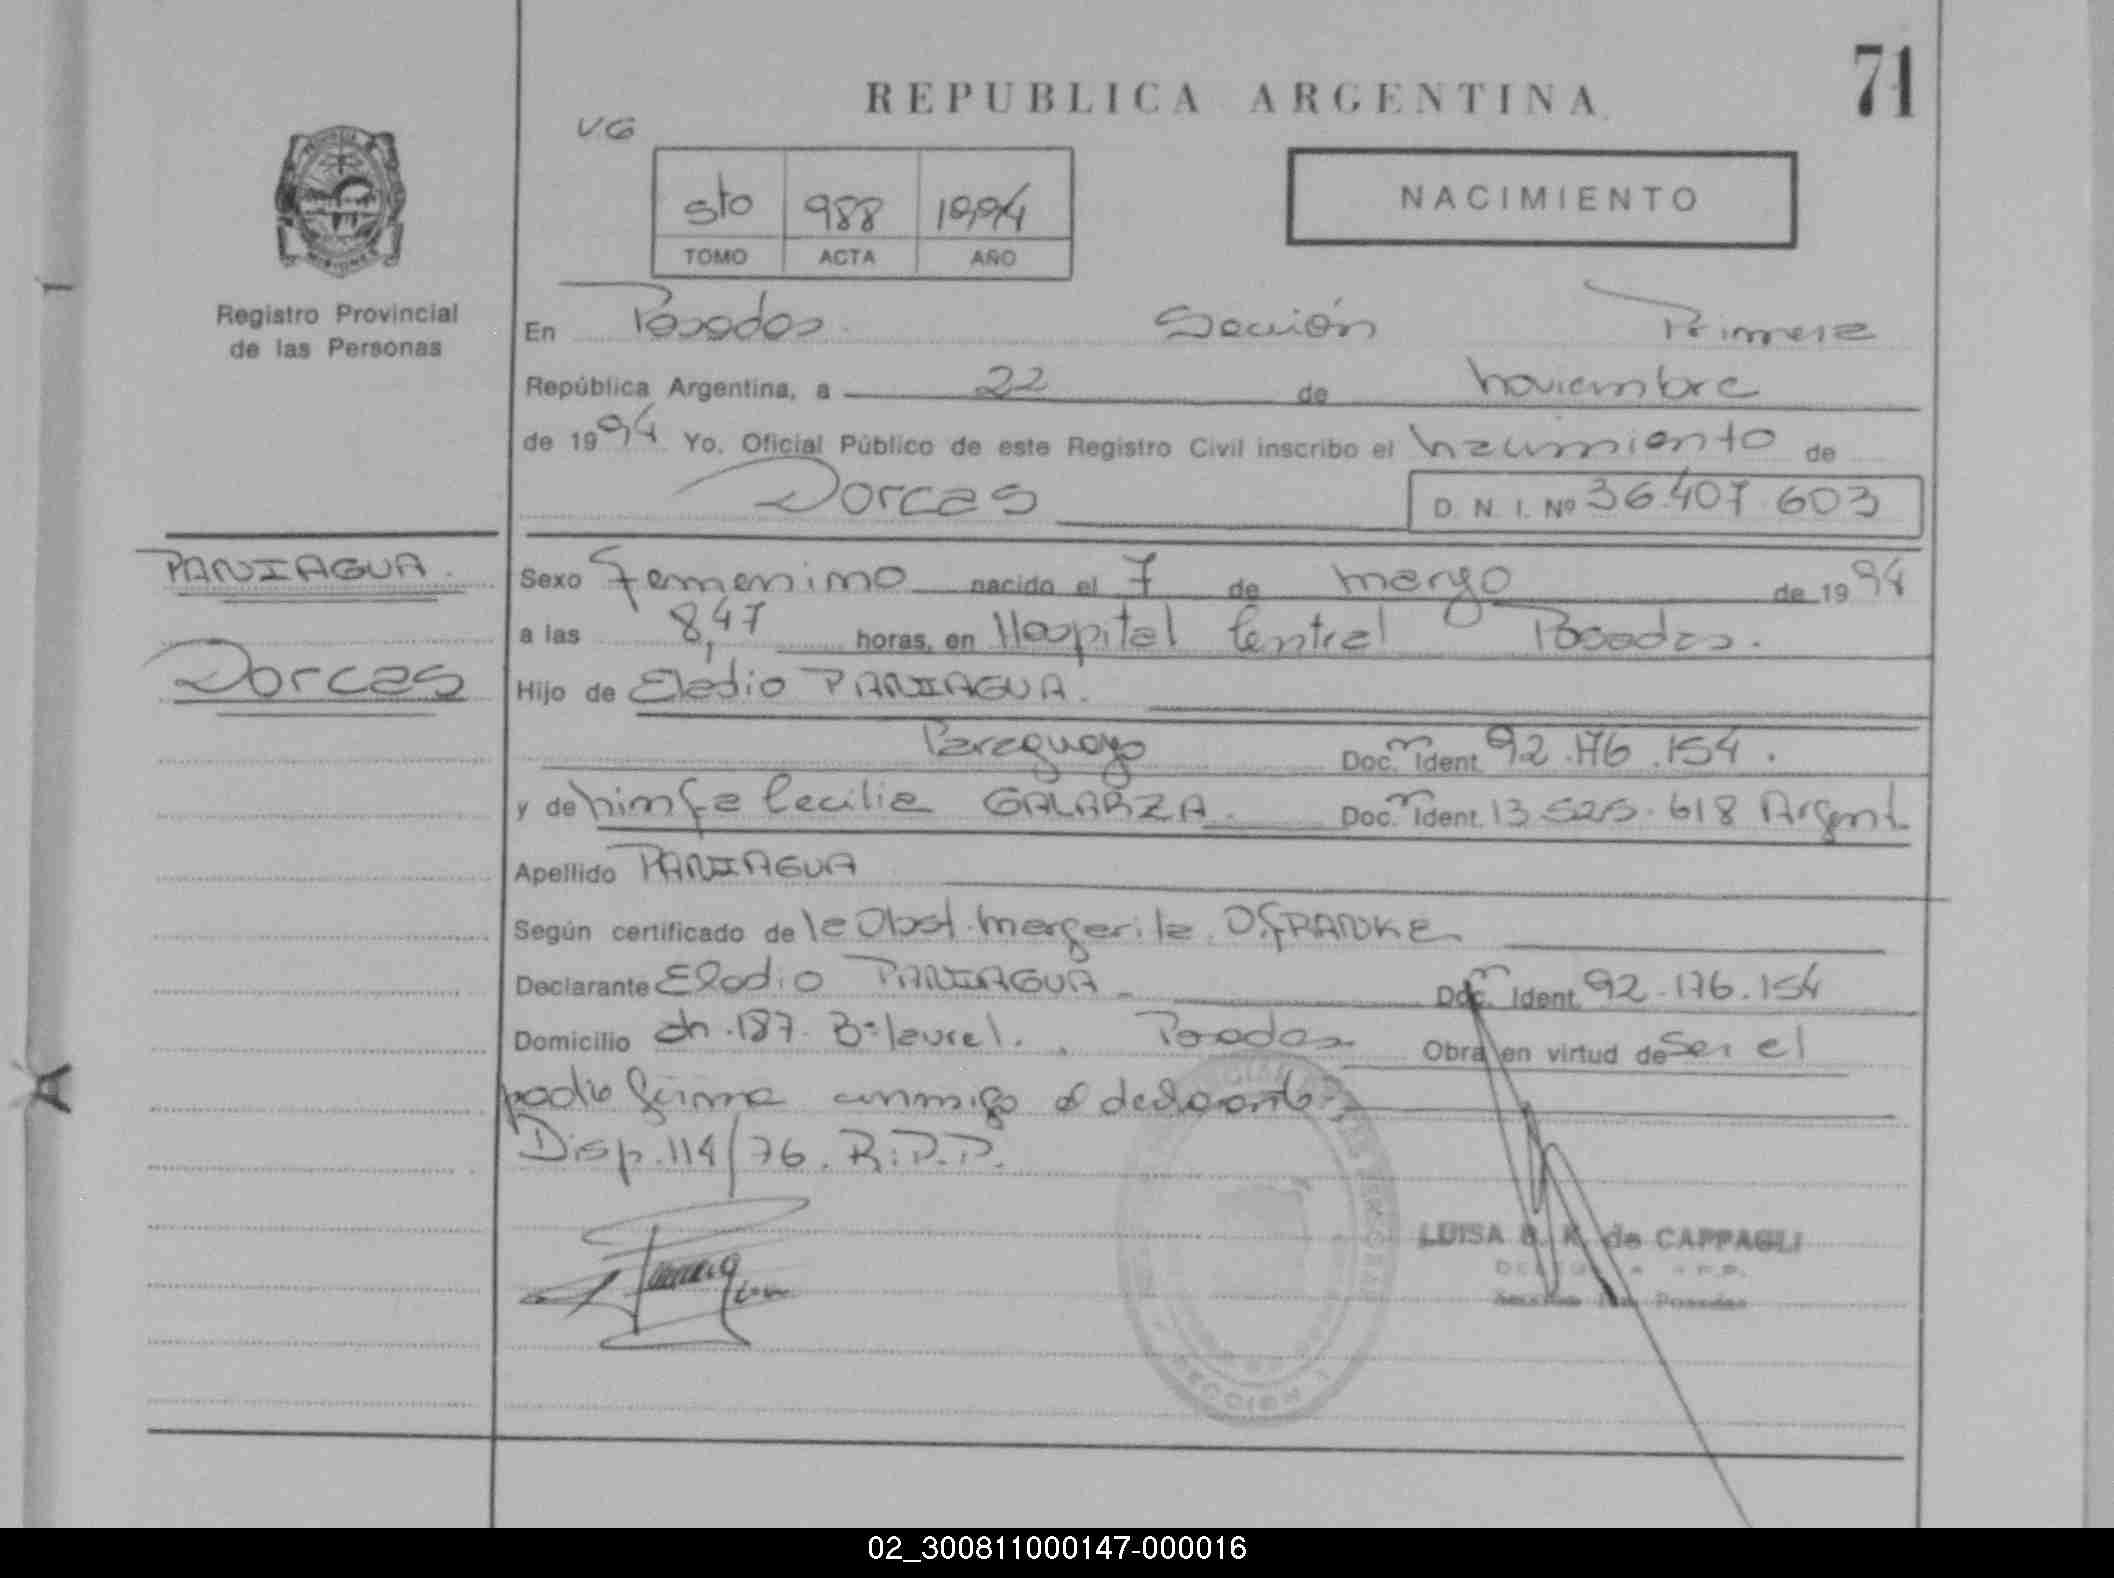 71
REPUBLICA ARGENTINA
VG
NACIMIENTO
5to 988 1994
TOMO ACTA AÑO
Registro Provincial
de las Personas
En Posadas Sección Primera
República Argentina, a 22 de noviembre
de 1994 Yo, Oficial Público de este Registro Civil inscribo el nacimiento de
Dorcas D. N. I. Nº 36.407.603
PANIAGUA
Dorcas
Sexo Femenino nacido el 7 de marzo de 1994
a las 8,47 horas, en Hospital Central Posadas.
Hijo de Eladio PANIAGUA.
Paraguayo Doc. Ident. 92.176.154.
y de Ninfa Cecilia GALARZA. Doc. Ident. 13.525.618 Argent.
Apellido PANIAGUA
Según certificado de la Obst. Margarita O. FRANKE
Declarante Eladio PANIAGUA Doc. Ident. 92.176.154
Domicilio ch. 187. Bº laurel. Posadas Obra en virtud de ser el
padre firma conmigo el declarante
Disp. 114/76. R.P.P.
LUISA B. K. de CAPPAGLI
Posadas
SECCION 1
02_300811000147-000016